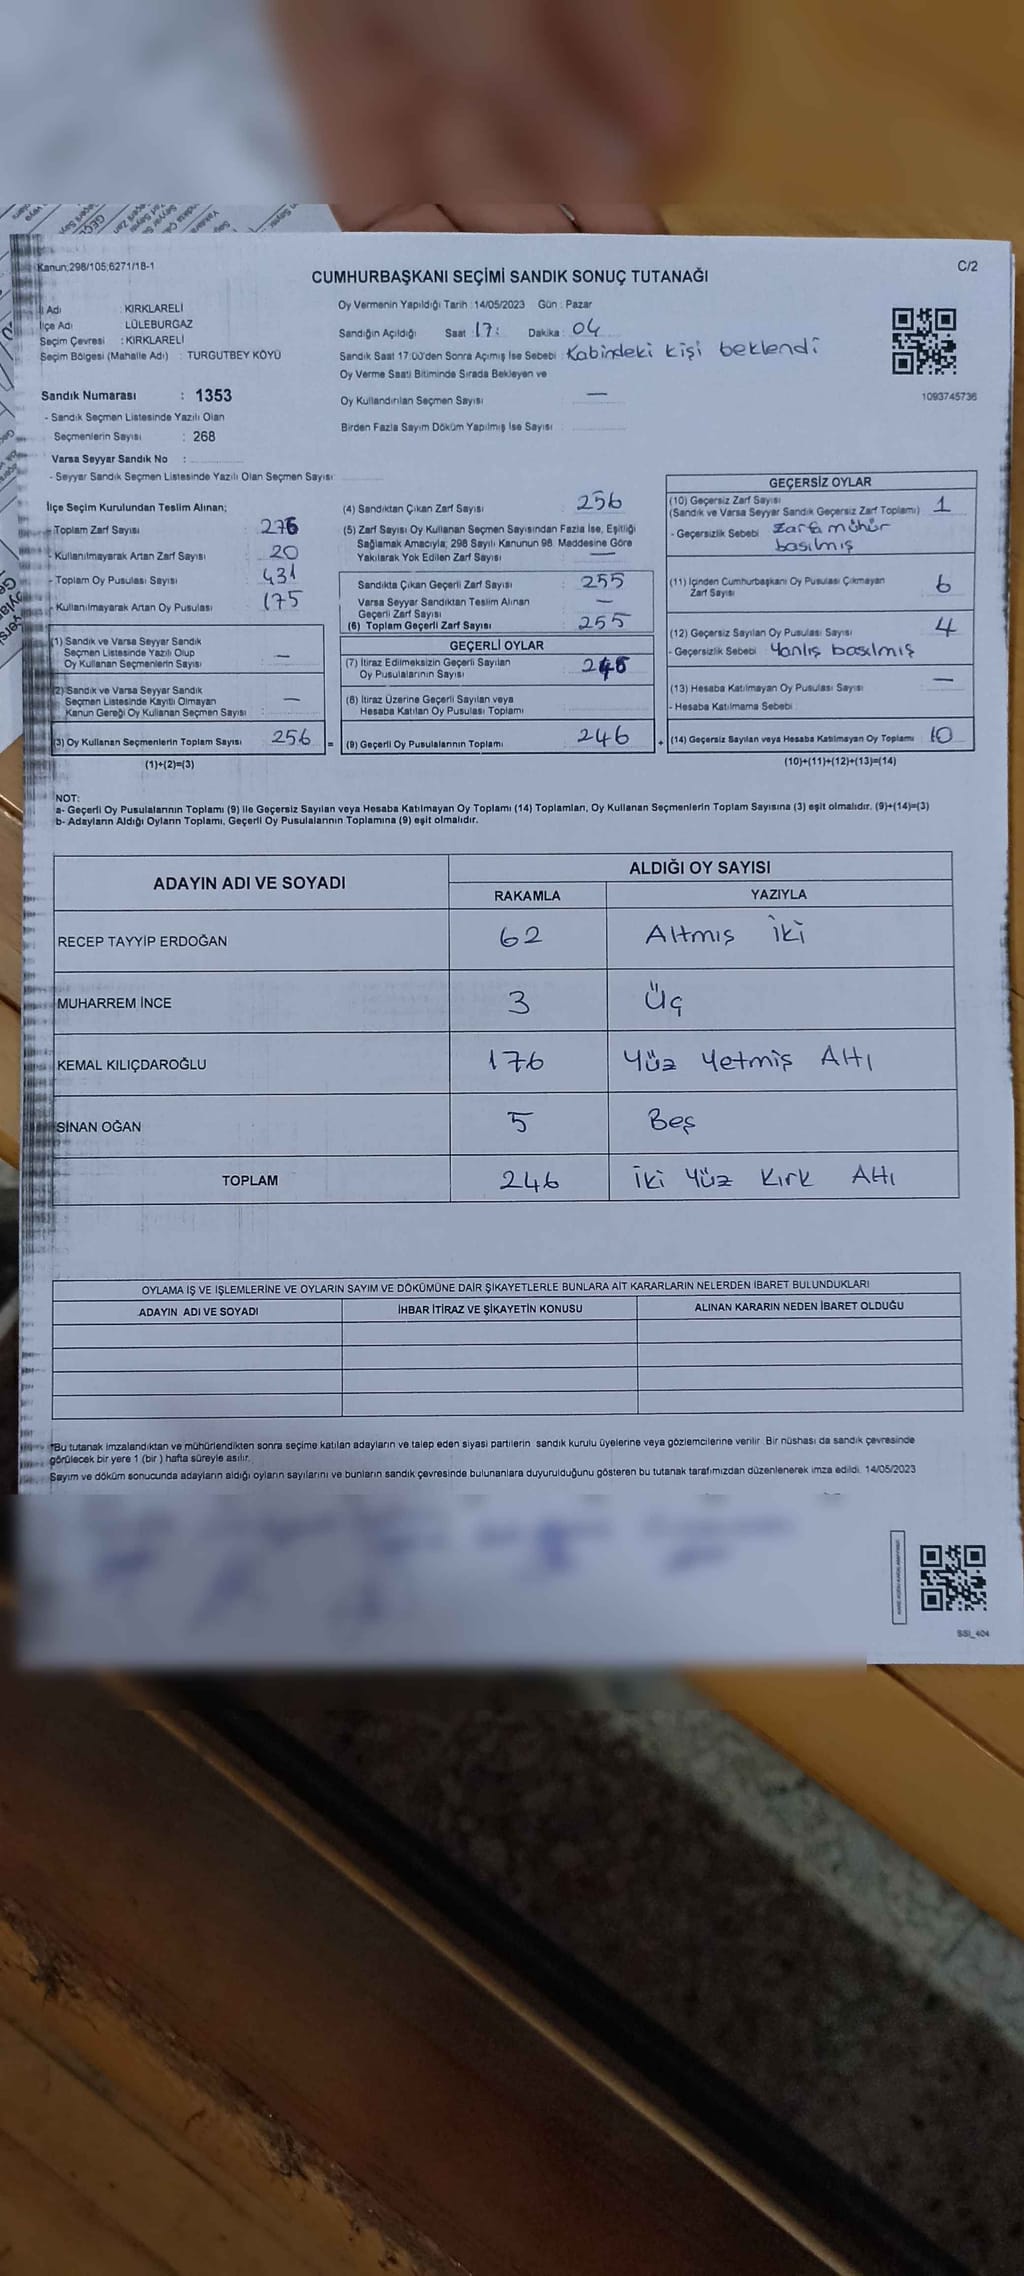 Kanun;298/105;6271/18-1
C/2
CUMHURBAŞKANI SEÇİMİ SANDIK SONUÇ TUTANAĞI
İl Adı : KIRKLARELİ
İlçe Adı LÜLEBURGAZ
Seçim Çevresi : KIRKLARELİ
Seçim Bölgesi (Mahalle Adı) : TURGUTBEY KÖYÜ
Sandık Numarası : 1353
- Sandık Seçmen Listesinde Yazılı Olan
Seçmenlerin Sayısı : 268
Varsa Seyyar Sandık No :
- Seyyar Sandık Seçmen Listesinde Yazılı Olan Seçmen Sayısı
Oy Vermenin Yapıldığı Tarih : 14/05/2023 Gün : Pazar
Sandığın Açıldığı Saat : 17: Dakika : 04
Sandık Saat 17:00'den Sonra Açımış İse Sebebi : Kabindeki kişi beklendi
Oy Verme Saati Bitiminde Sırada Bekleyen ve
Oy Kullandırılan Seçmen Sayısı —
Birden Fazla Sayım Döküm Yapılmış İse Sayısı
1093745736
İlçe Seçim Kurulundan Teslim Alınan;
- Toplam Zarf Sayısı 276
- Kullanılmayarak Artan Zarf Sayısı 20
- Toplam Oy Pusulası Sayısı 431
- Kullanılmayarak Artan Oy Pusulası 175
(1) Sandık ve Varsa Seyyar Sandık
Seçmen Listesinde Yazılı Olup
Oy Kullanan Seçmenlerin Sayısı : —
(2) Sandık ve Varsa Seyyar Sandık
Seçmen Listesinde Kayıtlı Olmayan
Kanun Gereği Oy Kullanan Seçmen Sayısı : —
(3) Oy Kullanan Seçmenlerin Toplam Sayısı 256 =
(1)+(2)=(3)
(4) Sandıktan Çıkan Zarf Sayısı : 256
(5) Zarf Sayısı Oy Kullanan Seçmen Sayısından Fazla İse, Eşitliği
Sağlamak Amacıyla; 298 Sayılı Kanunun 98. Maddesine Göre
Yakılarak Yok Edilen Zarf Sayısı : —
Sandıkta Çıkan Geçerli Zarf Sayısı : 255
Varsa Seyyar Sandıktan Teslim Alınan
Geçerli Zarf Sayısı : —
(6) Toplam Geçerli Zarf Sayısı : 255
GEÇERLİ OYLAR
(7) İtiraz Edilmeksizin Geçerli Sayılan
Oy Pusulalarının Sayısı : 246
(8) İtiraz Üzerine Geçerli Sayılan veya
Hesaba Katılan Oy Pusulası Toplamı
(9) Geçerli Oy Pusulalarının Toplamı : 246 +
GEÇERSİZ OYLAR
(10) Geçersiz Zarf Sayısı
(Sandık ve Varsa Seyyar Sandık Geçersiz Zarf Toplamı) 1
- Geçersizlik Sebebi : Zarfa mühür
basılmış
(11) İçinden Cumhurbaşkanı Oy Pusulası Çıkmayan
Zarf Sayısı 6
(12) Geçersiz Sayılan Oy Pusulası Sayısı 4
- Geçersizlik Sebebi : Yanlış basılmış
(13) Hesaba Katılmayan Oy Pusulası Sayısı —
- Hesaba Katılmama Sebebi
(14) Geçersiz Sayılan veya Hesaba Katılmayan Oy Toplamı : 10
(10)+(11)+(12)+(13)=(14)
NOT:
a- Geçerli Oy Pusulalarının Toplamı (9) ile Geçersiz Sayılan veya Hesaba Katılmayan Oy Toplamı (14) Toplamları, Oy Kullanan Seçmenlerin Toplam Sayısına (3) eşit olmalıdır. (9)+(14)=(3)
b- Adayların Aldığı Oyların Toplamı, Geçerli Oy Pusulalarının Toplamına (9) eşit olmalıdır.
ADAYIN ADI VE SOYADI ALDIĞI OY SAYISI
RAKAMLA YAZIYLA
RECEP TAYYİP ERDOĞAN 62 Altmış iki
MUHARREM İNCE 3 Üç
KEMAL KILIÇDAROĞLU 176 Yüz Yetmiş Altı
SİNAN OĞAN 5 Beş
TOPLAM 246 iki Yüz Kırk Altı
OYLAMA İŞ VE İŞLEMLERİNE VE OYLARIN SAYIM VE DÖKÜMÜNE DAİR ŞİKAYETLERLE BUNLARA AİT KARARLARIN NELERDEN İBARET BULUNDUKLARI
ADAYIN ADI VE SOYADI İHBAR İTİRAZ VE ŞİKAYETİN KONUSU ALINAN KARARIN NEDEN İBARET OLDUĞU
*Bu tutanak imzalandıktan ve mühürlendikten sonra seçime katılan adayların ve talep eden siyasi partilerin sandık kurulu üyelerine veya gözlemcilerine verilir. Bir nüshası da sandık çevresinde
görülecek bir yere 1 (bir ) hafta süreyle asılır.
Sayım ve döküm sonucunda adayların aldığı oyların sayılarını ve bunların sandık çevresinde bulunanlara duyurulduğunu gösteren bu tutanak tarafımızdan düzenlenerek imza edildi. 14/05/2023
SSI_404